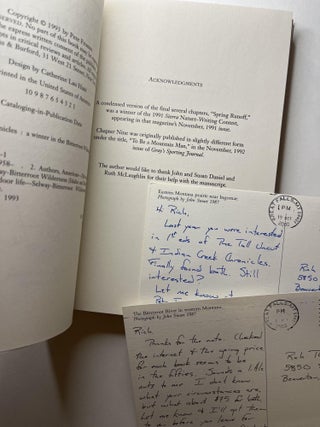 Copyright © 1993 by Pete
RESERVED. No part of this book
the express written consent of the
in critical reviews and articles.
& Burford, 31 West 21 Street,
Design by Catherine Lau
Printed in the United States of
10 9 8 7 6 5 4 3 2 1
Cataloging-in-Publication Data
nicles : a winter in the Bitterroot
1958–
2. Authors, American—
door life—Selway-Bitterroot Wilderness (Idaho
1993
ACKNOWLEDGMENTS
A condensed version of the final several chapters, "Spring Runoff,"
was a winner of the 1991 Sierra Nature-Writing Contest,
appearing in that magazine's November, 1991 issue.
Chapter Nine was originally published in slightly different form
under the title, "To be a Mountain Man," in the November, 1992
issue of Gray's Sporting Journal.
The author would like to thank John and Susan Daniel and
Ruth McLaughlin for their help with the manuscript.
Eastern Montana prairie near Ingomar.
Photograph by John Smart 1987
GREAT FALLS, MT
PM
OCT
Hi Rick,
Last year you were interested
in 1st eds of Pine Tall Uncut
& Indian Creek Chronicles.
Finally found both. Still
interested?
Let me know at
Rick
5850
Beaverton,
The Bitterroot River in western Montana.
Photograph by John Smart 1987
GREAT FALLS, MT
PM
Rick,
Thanks for the note. Checked
the internet & the going price
for each book seems to be
in the fifties. Sounds a little
nuts to me. I don't know
what your circumstances are,
but what about $75 for both.
Let me know & I'll get them
to you before you leave for
Rick
5850 S
Beaverton,